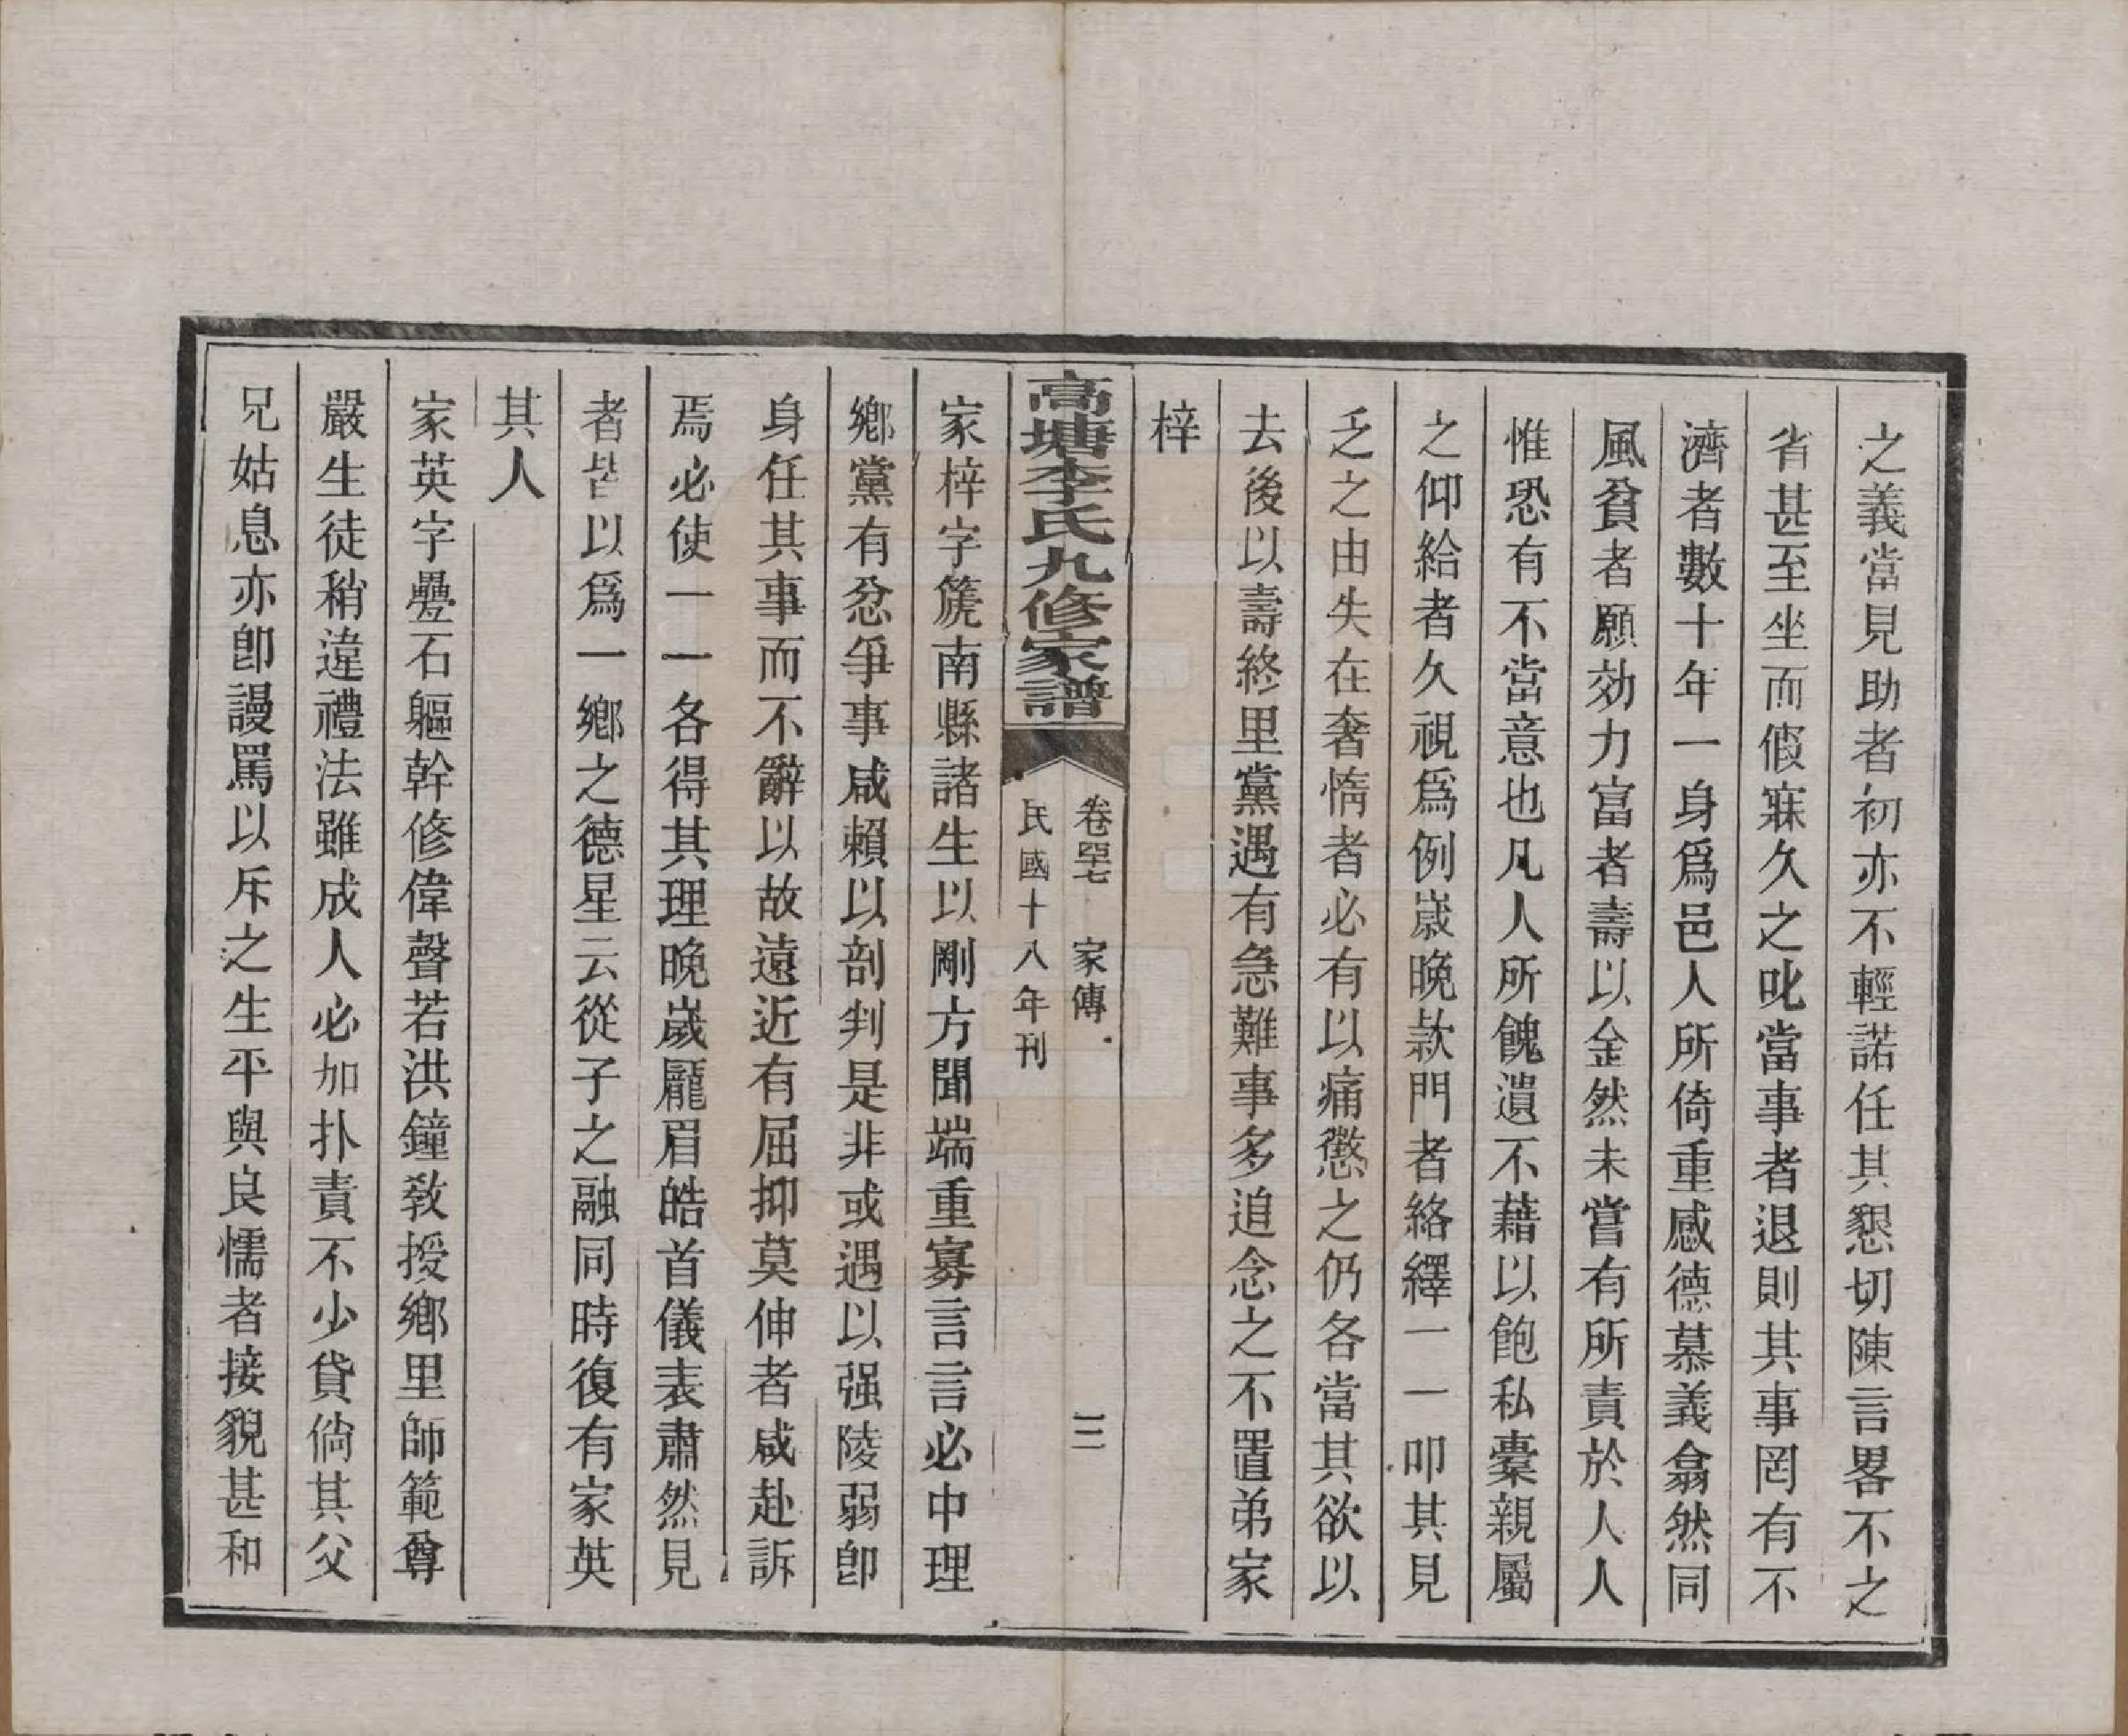 之義當見助者初亦不輕諾任其懇切陳言畧不之
省甚至坐而假寐久之叱當事者退則其事罔有不
濟者數十年一身爲邑人所倚重感德慕義翕然同
風貧者願効力富者壽以金然未嘗有所責於人人
惟恐有不當意也凡人所餽遺不藉以飽私橐親屬
之仰給者久視爲例嵗晚款門者絡繹一一叩其見
乏之由失在奢惰者必有以痛懲之仍各當其欲以
去後以壽終里黨遇有急難事多追念之不置弟家
梓
高塘李氏九修家譜
卷四十七 家傳 三
民國十八年刊
家梓字箎南縣諸生以剛方聞端重寡言言必中理
鄉黨有忿爭事咸賴以剖判是非或遇以强陵弱卽
身任其事而不辭以故遠近有屈抑莫伸者咸赴訴
焉必使一一各得其理晚嵗龎眉皓首儀表肅然見
者皆以爲一鄉之德星云從子之融同時復有家英
其人
家英字疊石軀幹修偉聲若洪鐘敎授鄉里師範尊
嚴生徒稍違禮法雖成人必加扑責不少貸倘其父
兄姑息亦卽謾罵以斥之生平與良懦者接貌甚和